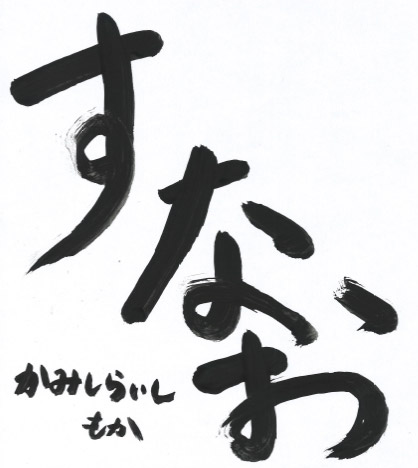 すなお
かみしらいし
もか